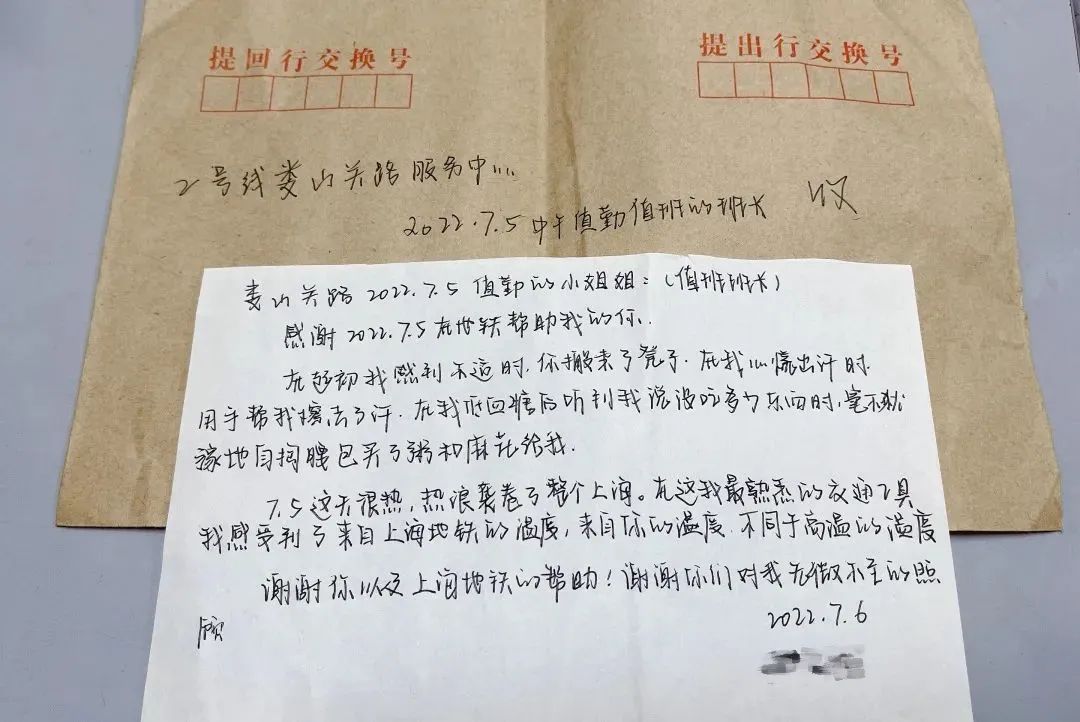 提回行交换号
提出行交换号
2号线娄山关路服务中心
2022.7.5中午值勤值班的班长 收
娄山关路2022.7.5值勤的小姐姐：(值班班长)
感谢2022.7.5在地铁帮助我的你.
在起初我感到不适时.你搬来了凳子.在我心慌出汗时
用手帮我擦去了汗.在我低血糖后听到我说没吃多少东西时,毫不犹
豫地自掏腰包买了粥和麻花给我.
7.5这天很热,热浪袭卷了整个上海。在这我最熟悉的交通工具
我感受到了来自上海地铁的温度,来自你的温度.不同于高温的温度
谢谢你以及上海地铁的帮助!谢谢你们对我无微不至的照
顾
2022.7.6